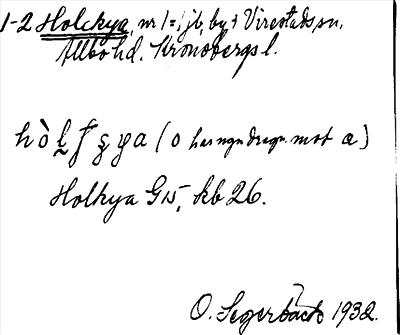 1-2 Holckya, nr 1=, jb, by i Virestads sn,
Allbo hd. Kronobergs l.
hòḷfşya (o har ngn dragn. mot a)
Holkya G 15, kb 26.
O. Segerbäck 1932.